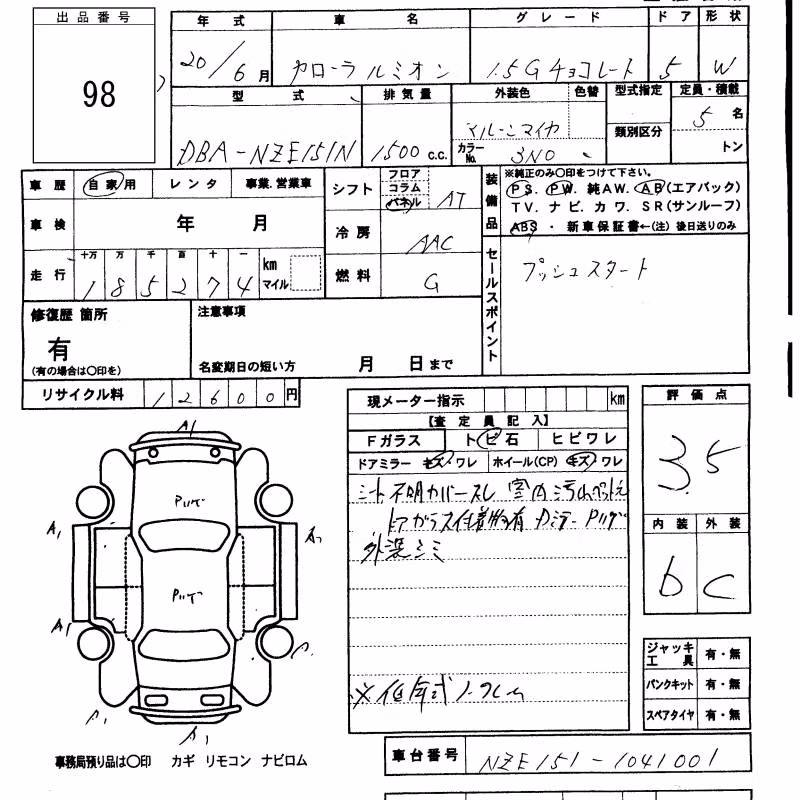 出品番号
98
年式 車名 グレード ドア 形状
20/6月 カローラルミオン 1.5Gチョコレート 5 W
型式 排気量 外装色 色替 型式指定 定員・積載
類別区分
DBA-NZE151N 1500c.c. マルーンマイカ 5名
カラーNo. 3N0 トン
車歴 自家用 レンタ 事業.営業車
シフト フロア コラム パネル AT
車検 年 月
冷房 AAC
走行 十万 万 千 百 十 一 km マイル
1 8 5 2 7 4
燃料 G
装備品
※純正のみ〇印をつけて下さい。
P.S. P.W. 純A.W. A.B(エアバック)
T.V. ナビ. カワ. S.R(サンルーフ)
ABS・新車保証書←(注)後日送りのみ
セールスポイント
プッシュスタート
修復歴 箇所
有
(有の場合は〇印を)
注意事項
名変期日の短い方 月 日まで
リサイクル料 12600円
現メーター指示 km
【査定員記入】
Fガラス トビ石 ヒビワレ
ドアミラー キズ・ワレ ホイール(CP) キズ・ワレ
シート不明カバースレ 室内汚れ
ドアガラス付着物有 Dミラー
外装シミ
※低年式
評価点
3.5
内装 外装
b C
ジャッキ工具 有・無
パンクキット 有・無
スペアタイヤ 有・無
A1
A1
A2
A1
A1
事務局預り品は〇印 カギ リモコン ナビロム
車台番号 NZE151-1041001